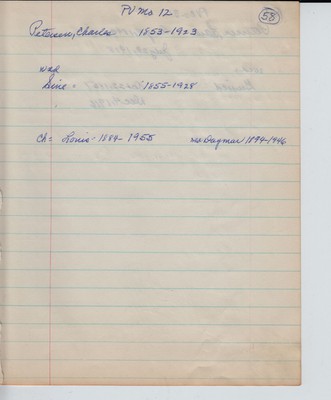 PV No 12
58
Petersen, Charles 1853-1923
wad
Sine - 1855-1928
Ch = Louis - 1889-1955 wd. Dagmar 1894-1946